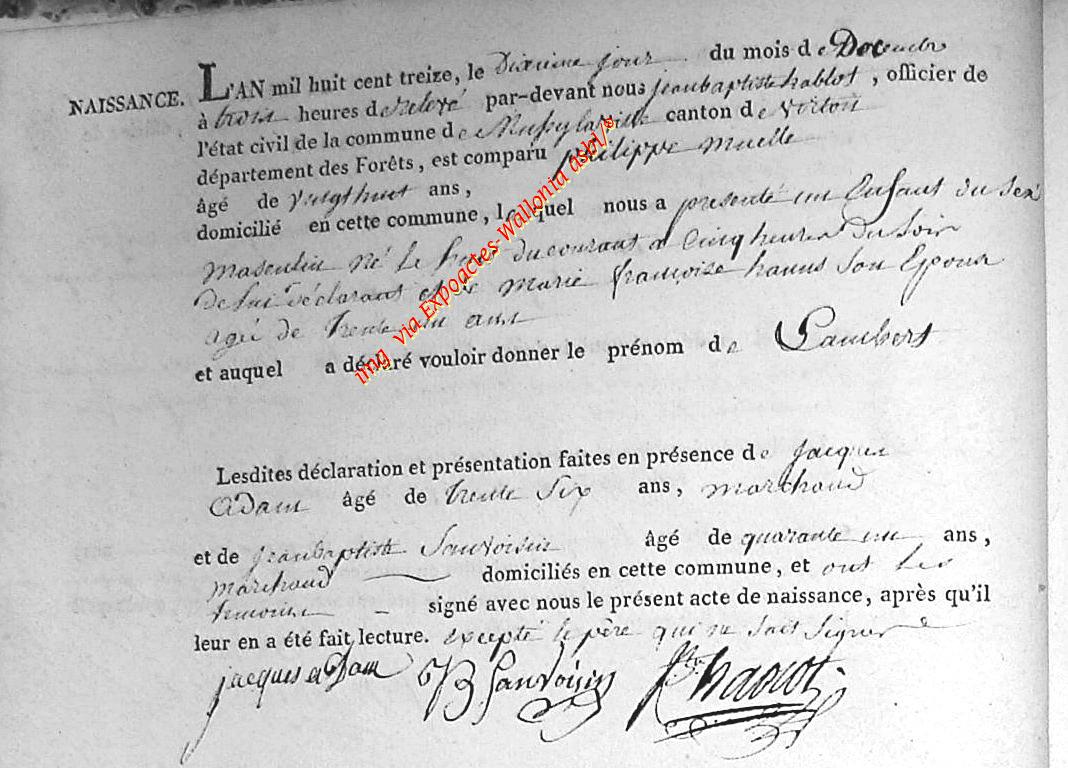 NAISSANCE. L'AN mil huit cent treize, le Dixieme jour du mois de Decembre
à trois heures de relevé par-devant nous jeanbaptiste hablot, officier de
l'état civil de la commune de Mussylaville canton de virton
département des Forêts, est comparu philippe muelle
âgé de vingthuit ans,
domicilié en cette commune, lequel nous a presenté un Enfant du sex
masculin né le du courant a Cinq heures du Soir
de lui déclarant et de marie françoise hanus Son Epouse
agée de trente ans
et auquel a déclaré vouloir donner le prénom de Lambert
Lesdites déclaration et présentation faites en présence de jacques
adam âgé de trente Six ans, marchand
et de jeanbaptiste Sauvoisin âgé de quarante un ans,
marchand domiciliés en cette commune, et ont les
temoins signé avec nous le présent acte de naissance, après qu'il
leur en a été fait lecture. excepté le père qui ne sait signer
jacques adam JB Sauvoisin hablot
img via Expoactes-Wallonia asbl/®